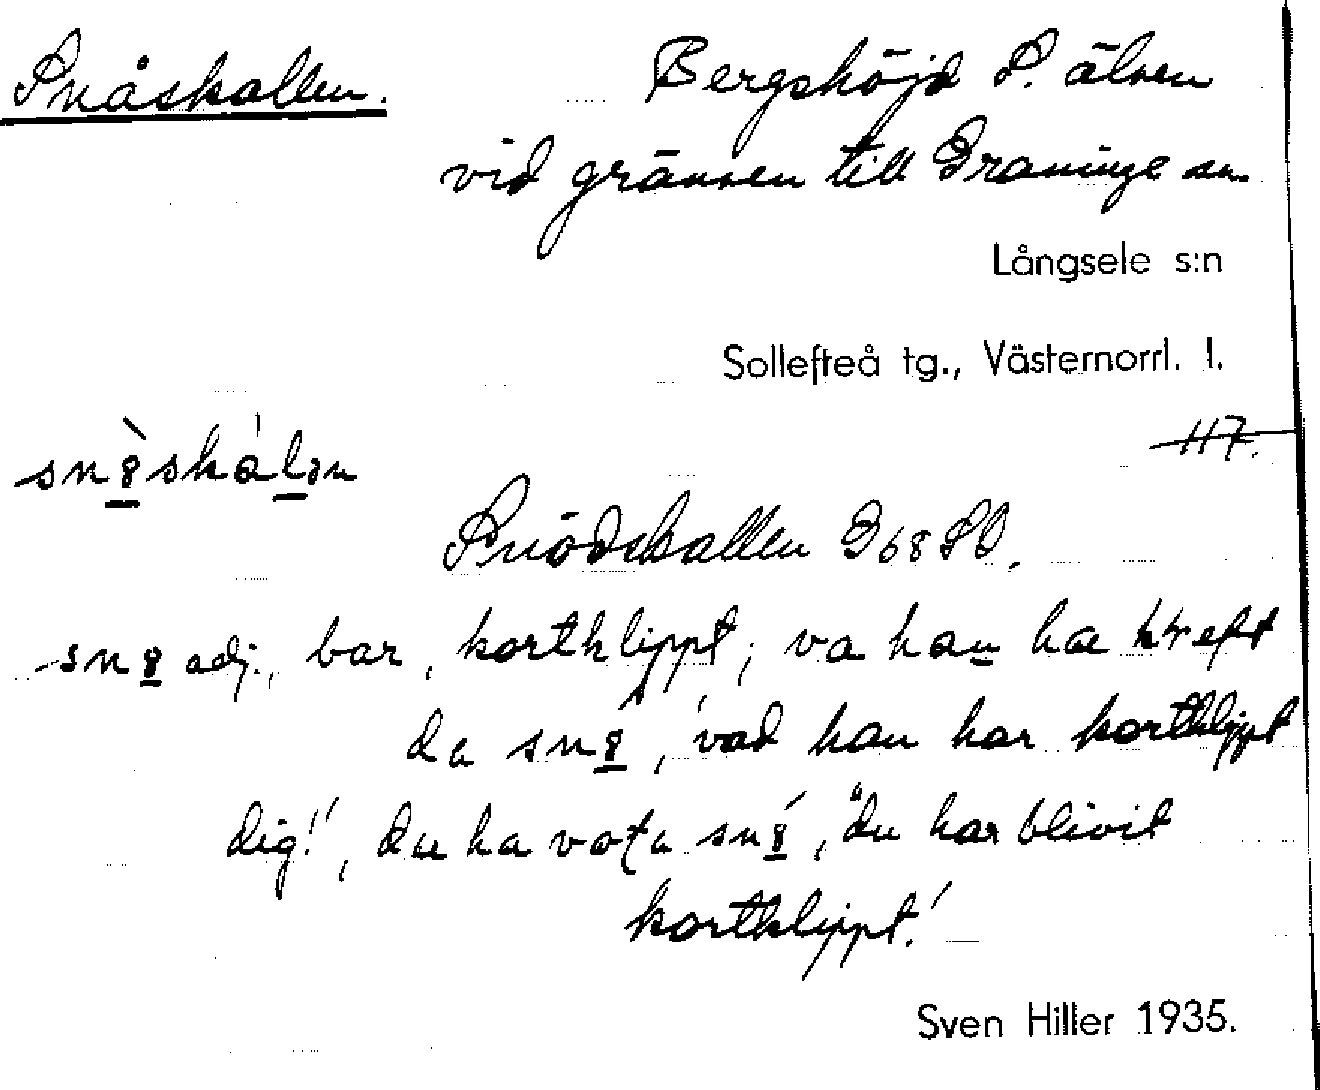 Snåskallen. Bergshöjd S. älven
vid gränsen till Graninge sn.
Långsele s:n
Sollefteå tg., Västernorrl. l.
117.
sn8̲̀skál̲ən
Snödskallen G68SO.
sn8̲ adj., bar, kortklippt; va han̲ ha kleft
da sn8̲, 'vad han har kortklippt
dig!', du ha vota sn8̲́, 'du har blivit
kortklippt!'
Sven Hiller 1935.